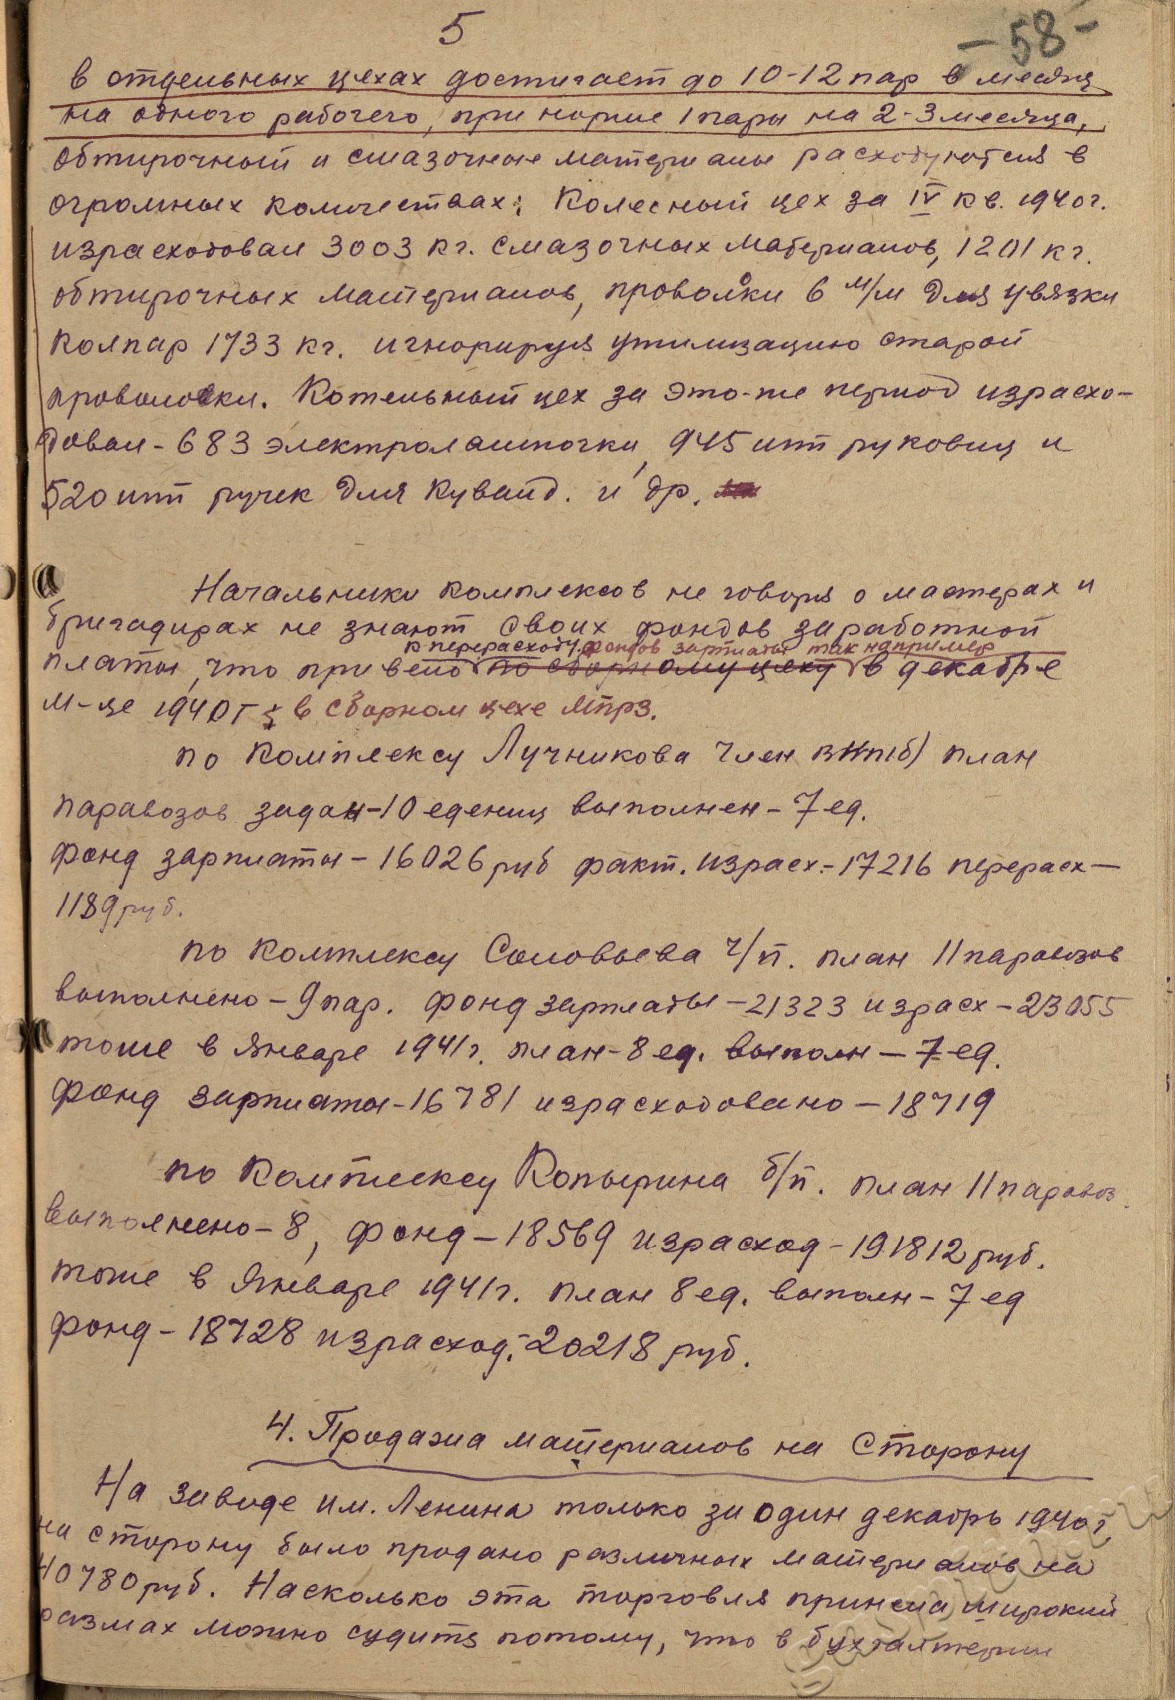 5
-58-
в отдельных цехах достигает до 10-12 пар в месяц
на одного рабочего, при норме 1 пары на 2-3 месяца,
обтирочный и смазочные материалы расходуются в
огромных количествах: Колесный цех за IV кв. 1940г.
израсходовал 3003 кг. смазочных материалов, 1201 кг.
обтирочных материалов, проволоки 6 м/м для увязки
колпар 1733 кг. игнорируя утилизацию старой
проволоки. Котельный цех за это-же период израсхо-
довал - 683 электролампочки, 945 шт руковиц и
520 шт ручек для кувалд. и др.
Начальники комплексов не говоря о мастерах и
бригадирах не знают своих фондов заработной
к перерасходу фондов зарплаты так например
платы, что привело по сборному цеху в декабре
м-це 1940г в сборном цехе МПРЗ.
по комплексу Лучникова член ВКП(б) план
паравозов задан-10 едениц выполнен - 7 ед.
фонд зарплаты - 16026 руб факт. израсх.-17216 перерасх-
1189 руб.
по комплексу Соловьева ч/п. план 11 паравозов
выполнено - 9 пар. фонд зарплаты - 21323 израсх - 23055
тоже в Январе 1941г. план - 8 ед. выполн - 7 ед.
фонд зарплаты - 16781 израсходовано - 18719
по комплексу Копырина б/п. план 11 паравоз.
выполнено - 8, фонд - 18569 израсход - 191812 руб.
тоже в Январе 1941г. план 8 ед. выполн - 7 ед
фонд - 18728 израсход.-20218 руб.
4. Продажа материалов на сторону
На заводе им. Ленина только за один декабрь 1940г.
на сторону было продано различных материалов на
40780 руб. Насколько эта торговля приняла широкий
размах можно судить потому, что в бухгалтерии